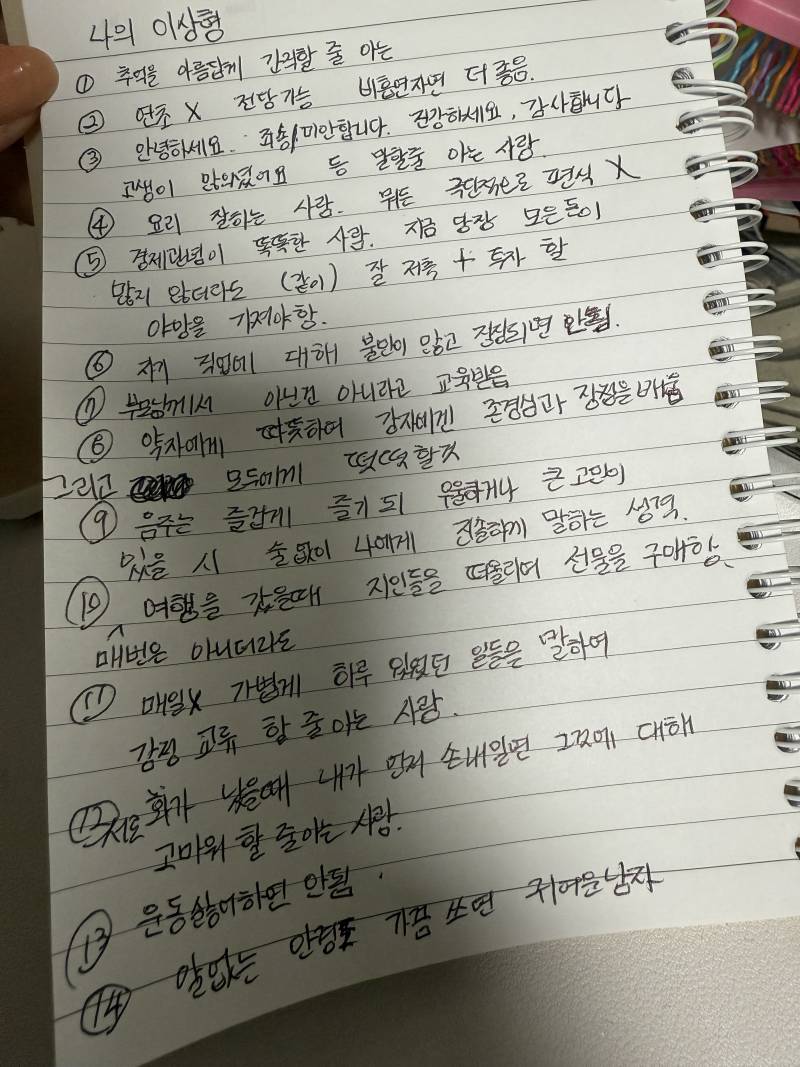 나의 이상형
① 추억을 아름답게 간직할 줄 아는
② 연초 X 전담가능 비흡연자면 더 좋음.
③ 안녕하세요. 죄송/미안합니다. 건강하세요, 감사합니다
고생이 많으셨어요 등 말할줄 아는 사람.
④ 요리 잘하는 사람. 뭐든 극단적으로 편식 X
⑤ 경제관념이 똑똑한 사람. 지금 당장 모은돈이
많지 않더라도 (같이) 잘 저축 + 투자 할
야망을 가져야함.
⑥ 자기 직업에 대해 불만이 많고 적당되면 안됨.
⑦ 부모님께서 아닌건 아니라고 교육받음
⑧ 약자에게 따뜻하며 강자에겐 존경심과 장점을 배움
그리고 모두에게 떳떳할것
⑨ 음주는 즐겁게 즐기되 우울하거나 큰 고민이
있을 시 술없이 나에게 진솔하게 말하는 성격.
⑩ 여행을 갔을때 지인들을 떠올리며 선물을 구매함.
매번은 아니더라도
⑪ 매일X 가볍게 하루 있었던 일들을 말하며
감정 교류 할 줄 아는 사람.
⑫ 서로 화가 났을때 내가 먼저 손내밀면 그것에 대해
고마워 할 줄아는 사람.
⑬ 운동싫어하면 안됨.
⑭ 알없는 안경 가끔 쓰면 귀여운남자